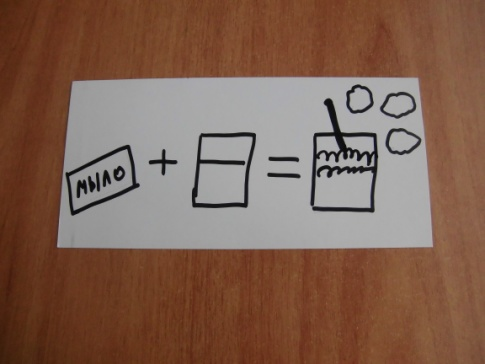 мыло + =